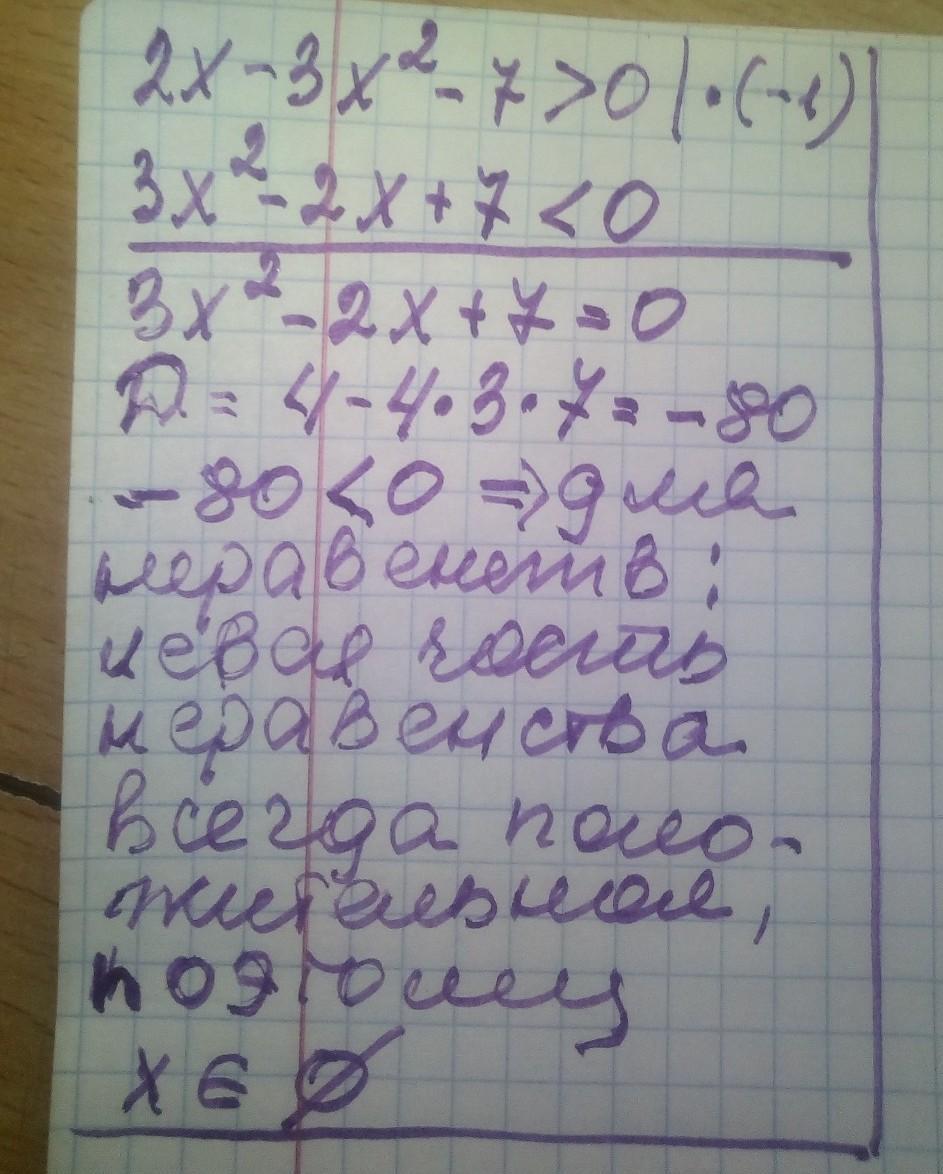 2x - 3x² - 7 > 0 | · (-1)
3x² - 2x + 7 < 0
3x² - 2x + 7 = 0
D = 4 - 4 · 3 · 7 = -80
-80 < 0 => для
неравенств:
левая часть
неравенства
всегда поло-
жительная,
поэтому
x ∈ ∅